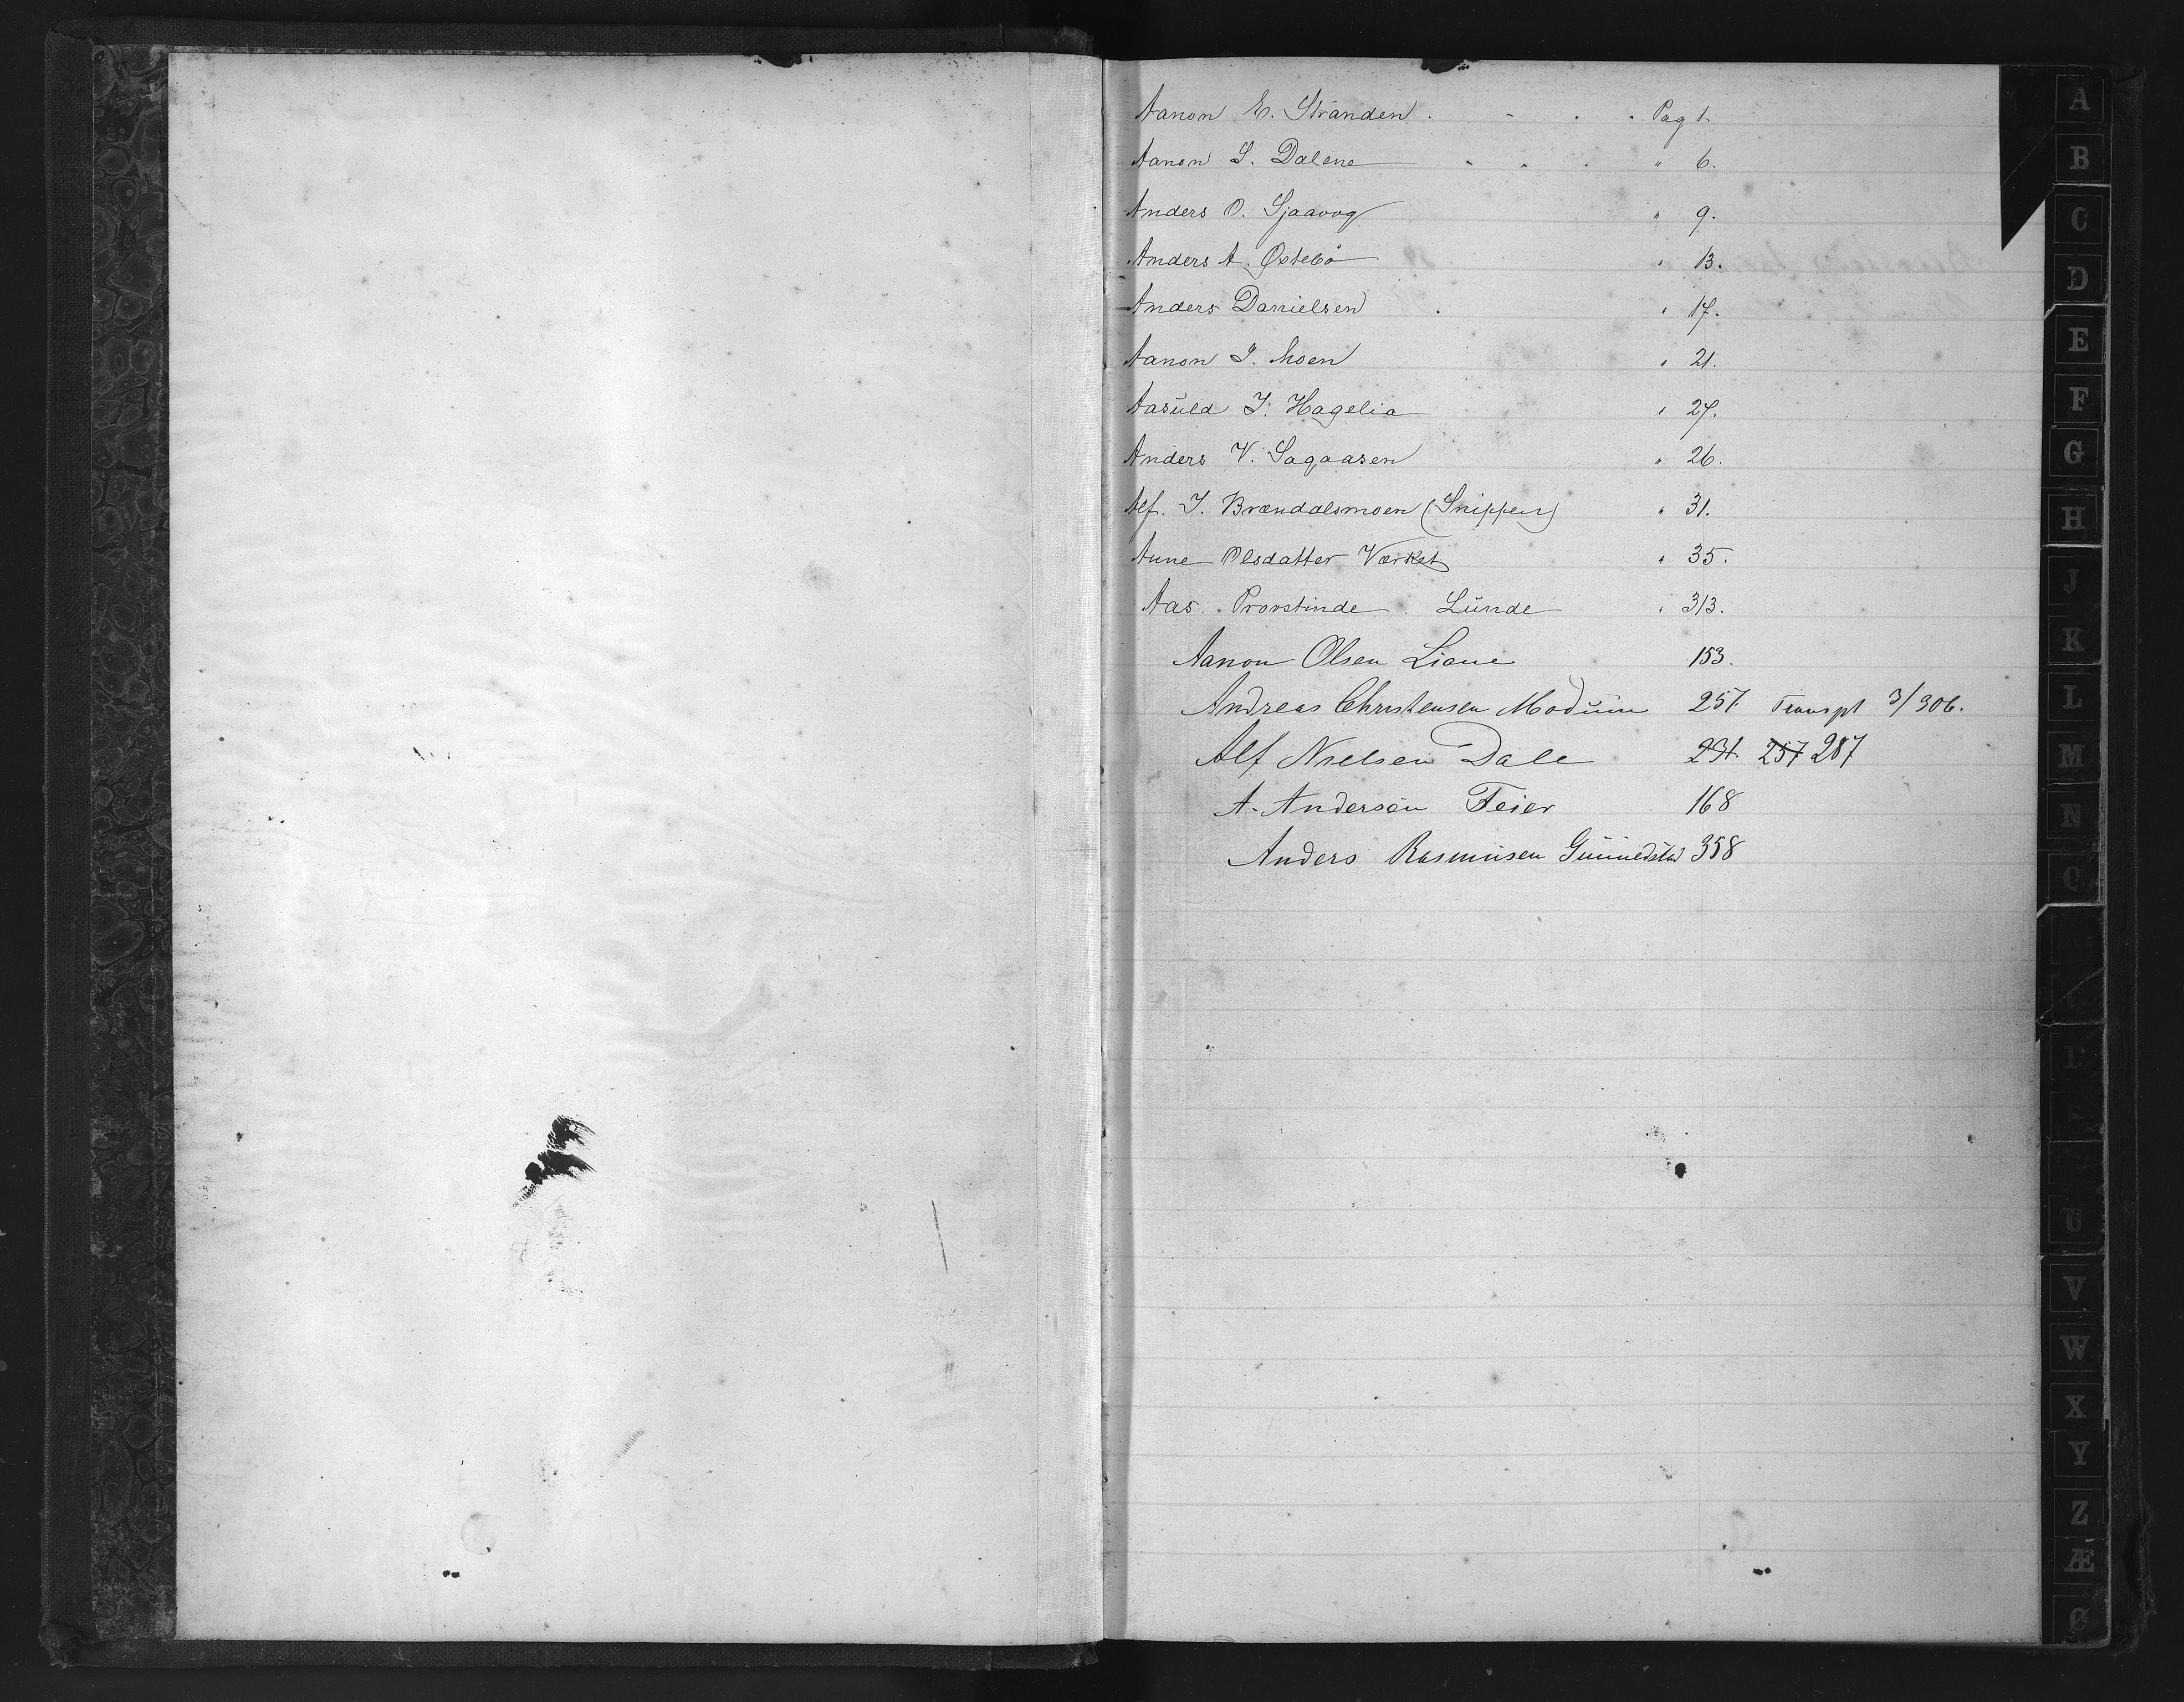 Aanon E. Stranden . - . . Pag 1.
Aanon S. Dalene . . . " 6.
Anders O. Sjaavåg " 9.
Anders A. Østebø " 13.
Anders Danielsen . " 17.
Aanon I. Moen " 21.
Aasuld I. Hagelia " 27.
Anders V. Sagaasen " 26.
Alf. I. Brændalsmoen (Snippen) " 31.
Anne Olsdatter Værket " 35.
Aas. Provstinde . Lunde " 313.
Aanon Olsen Liane 153.
Andreas Christensen Modum 257. Transpt 3/306.
Alf Nielsen Dale 231. 257 287
A. Andersen Feier 168
Anders Rasmusen 358
A
B
C
D
E
F
G
H
J
K
L
M
N
O
T
U
V
W
X
Y
Z
Æ
Ø